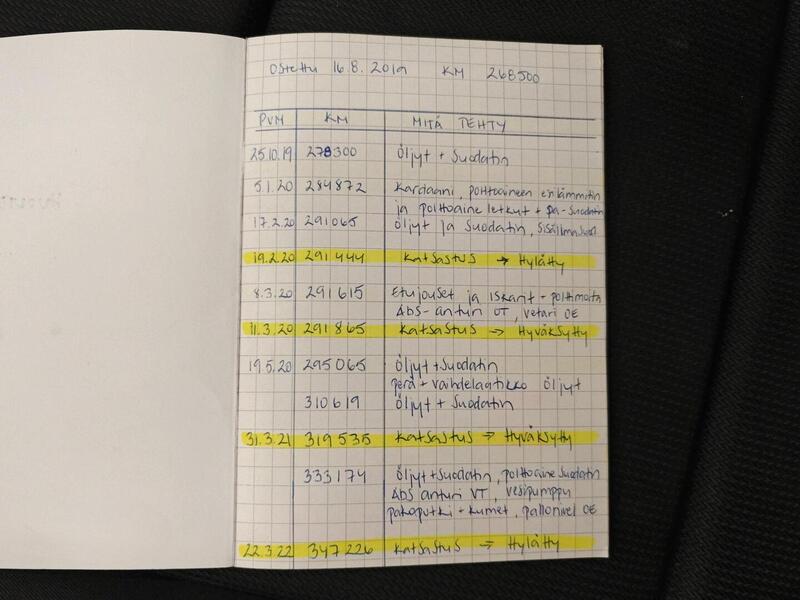 Ostettu 16.8.2019 KM 268500
PVM KM MITÄ TEHTY
25.10.19 278300 Öljyt + suodatin
5.1.20 284872 Kardaani, polttoaineen esilämmitin
ja polttoaine letkut + pa-suodatin
17.2.20 291065 Öljyt ja suodatin,
19.2.20 291444 Katsastus → Hylätty
8.3.20 291615 Etujouset ja iskarit + polttimoita
ABS-anturi OT, vetari OE
11.3.20 291865 Katsastus → Hyväksytty
19.5.20 295065 Öljyt + suodatin
perä + vaihdelaatikko öljyt
310619 Öljyt + suodatin
31.3.21 319535 Katsastus → Hyväksytty
333174 Öljyt + suodatin, polttoaine suodatin
ABS anturi VT, vesipumppu
pakoputki + kumet, pallonivel OE
22.3.22 347226 Katsastus → Hylätty